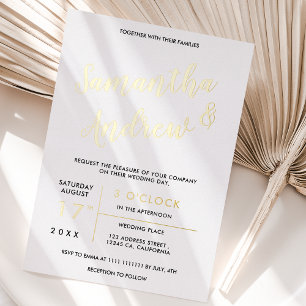 TOGETHER WITH THEIR FAMILIES
Samantha
&
Andrew
REQUEST THE PLEASURE OF YOUR COMPANY
ON THEIR WEDDING DAY.
SATURDAY
AUGUST
17th
20XX
5 O'CLOCK
IN THE AFTERNOON
WEDDING PLACE
123 ADDRESS STREET,
12345 CA, CALIFORNIA
RSVP TO EMMA AT 1111 1111111 BY JULY, 4TH
RECEPTION TO FOLLOW